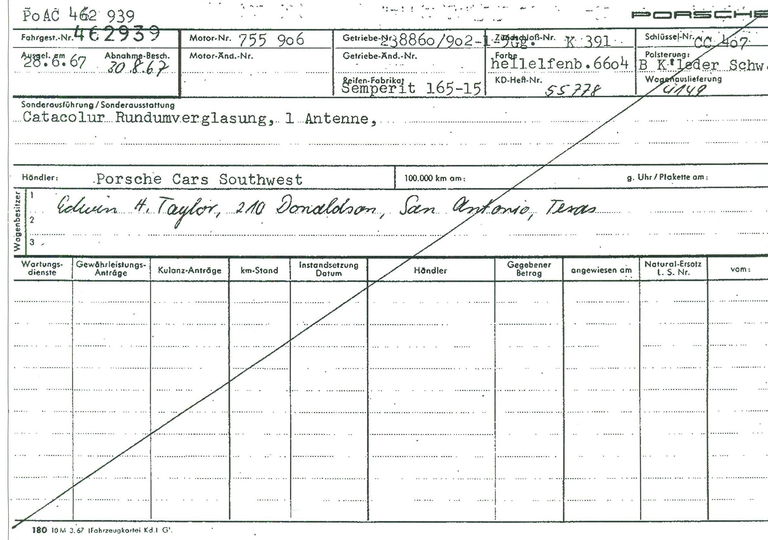 PoAC 462 939
PORSCHE
Fahrgest.-Nr. 462939 Motor-Nr. 755 906 Getriebe-Nr. 238860/902-1 K 391 Schlüssel-Nr. CC 407
Ausgel. am Abnahme-Besch. Motor-Änd.-Nr. Getriebe-Änd.-Nr. Farbe Polsterung:
28.8.67 30.8.67 hellelfenb.6604 B K'leder Schw.
Reifen-Fabrikat KD-Heft-Nr. Wagenauslieferung
Semperit 165-15 55778
Sonderausführung/Sonderausstattung
Catacolur Rundumverglasung, 1 Antenne,
Händler: Porsche Cars Southwest 100.000 km am: g. Uhr/Plakette am:
Wagenbesitzer
1 Edwin H. Taylor, 210 Donaldson, San Antonio, Texas
2
3
Wartungs-dienste Gewährleistungs-Anträge Kulanz-Anträge km-Stand Instandsetzung Datum Händler Gegebener Betrag angewiesen am Natural-Ersatz L. S. Nr. vom:
180 10 M 3.67 (Fahrzeugkartei Kd.) G.